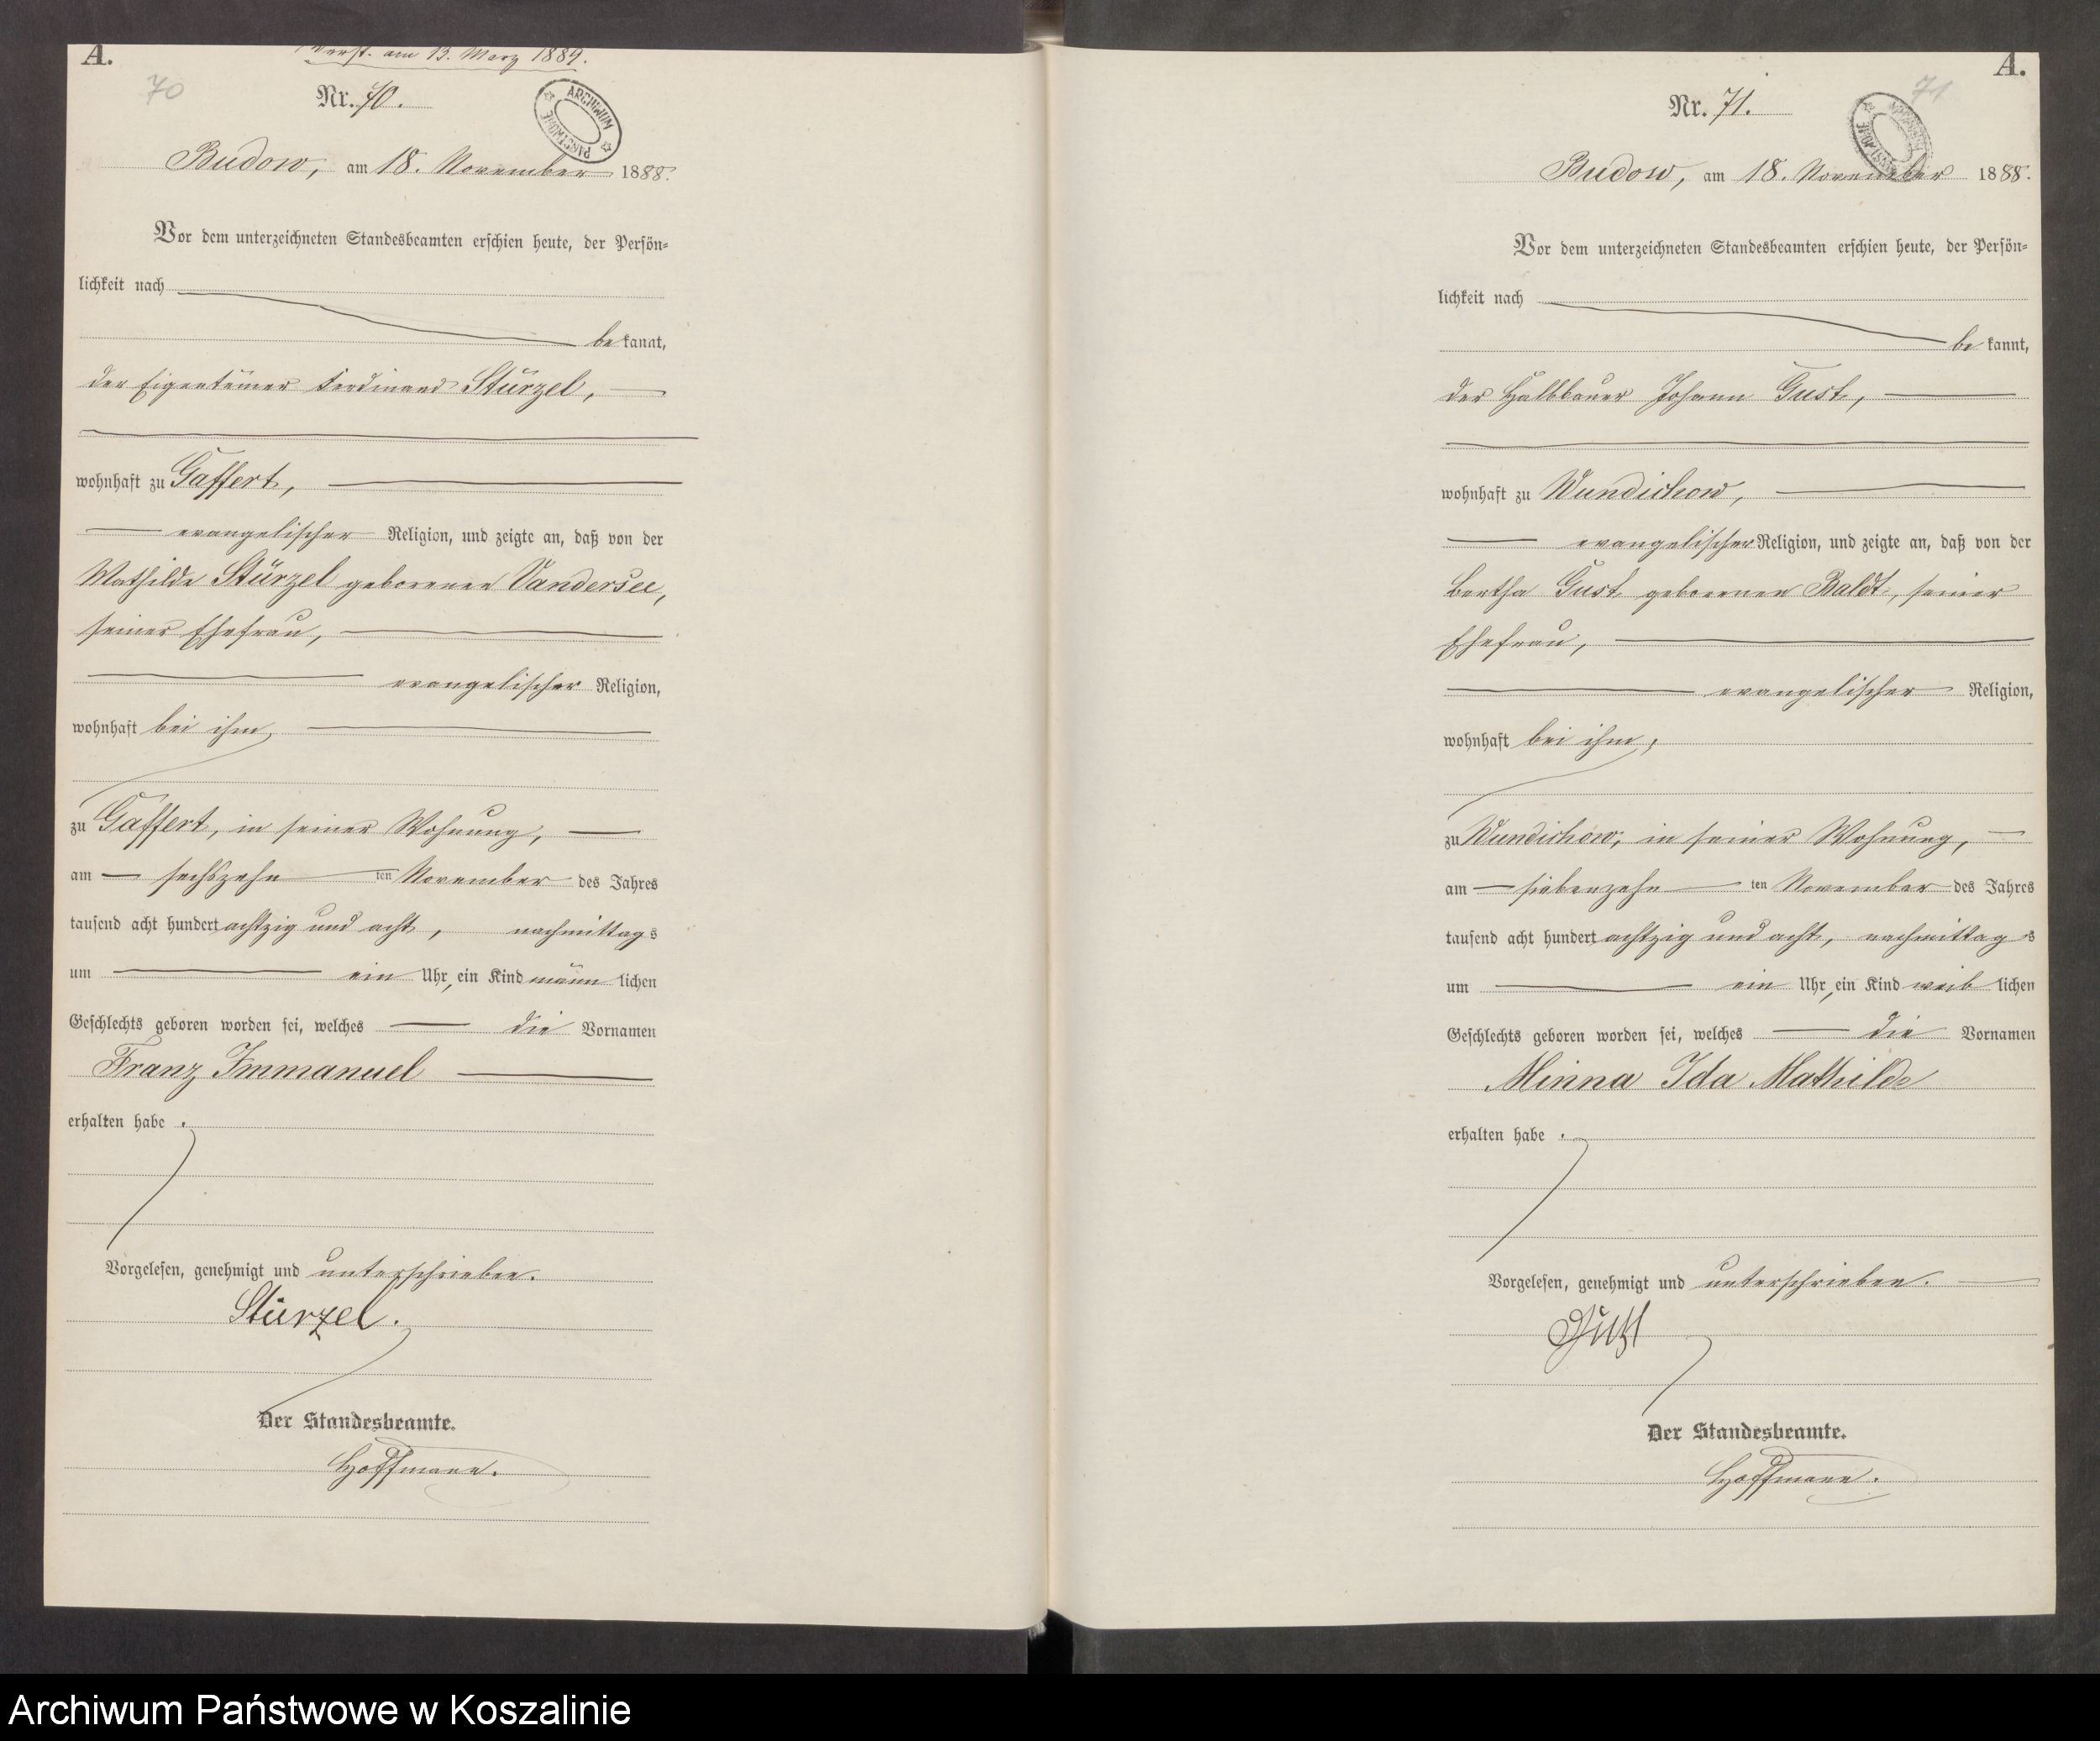 A.
Verst. am 13. März 1889.
70
Nr. 70.
ARCHIWUM PAŃSTWOWE
Budow, am 18. November 1888.
Vor dem unterzeichneten Standesbeamten erschien heute, der Persön-
lichkeit nach
be kannt,
der Eigentümer Ferdinand Stürzel,
wohnhaft zu Gaffert,
evangelischer Religion, und zeigte an, daß von der
Mathilde Stürzel geborenen Vandersee,
seiner Ehefrau,
evangelischer Religion,
wohnhaft bei ihm,
zu Gaffert, in seiner Wohnung,
am sechszehn ten November des Jahres
tausend acht hundert achtzig und acht, nachmittag s
um ein Uhr, ein Kind männ lichen
Geschlechts geboren worden sei, welches die Vornamen
Franz Immanuel
erhalten habe.
Vorgelesen, genehmigt und unterschrieben.
Stürzel.
Der Standesbeamte.
Hoffmann.
A.
71
Nr. 71.
ARCHIWUM PAŃSTWOWE
Budow, am 18. November 1888.
Vor dem unterzeichneten Standesbeamten erschien heute, der Persön-
lichkeit nach
be kannt,
der Halbbauer Johann Gust,
wohnhaft zu Wundichow,
evangelischer Religion, und zeigte an, daß von der
Bertha Gust geborenen Baldt, seiner
Ehefrau,
evangelischer Religion,
wohnhaft bei ihm,
zu Wundichow, in seiner Wohnung,
am siebenzehn ten November des Jahres
tausend acht hundert achtzig und acht, nachmittag s
um ein Uhr, ein Kind weib lichen
Geschlechts geboren worden sei, welches die Vornamen
Minna Ida Mathilde
erhalten habe.
Vorgelesen, genehmigt und unterschrieben.
Gust
Der Standesbeamte.
Hoffmann.
Archiwum Państwowe w Koszalinie